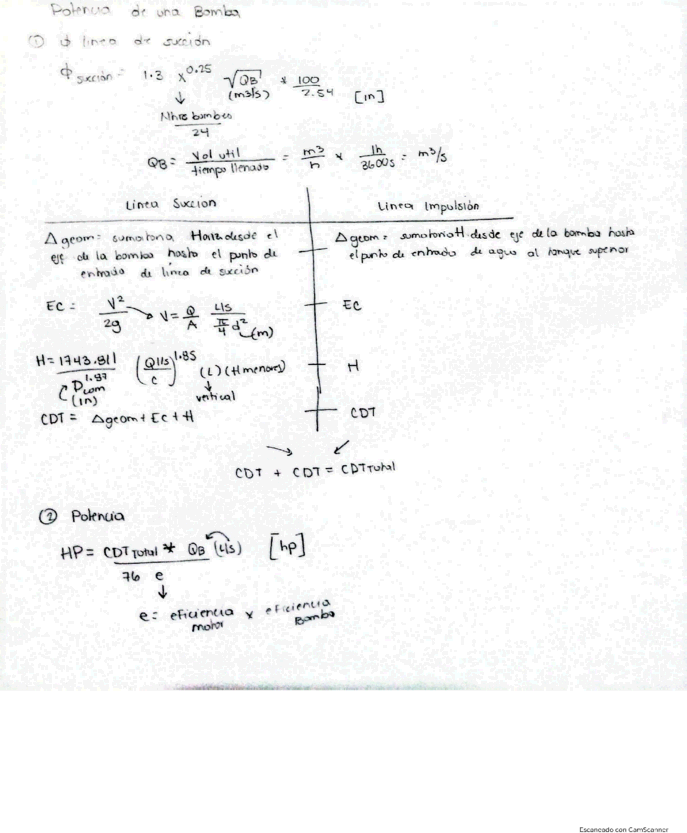 Potencia de una Bomba
① ϕ linea de succión
ϕ succión = 1.3 x^0.25 √QB * 100/2.54 [in]
(m3/s)
Nhrs bombeo
24
QB = Vol util / tiempo llenado = m³/h x 1h/3600s = m³/s
Linea Succion
Δgeom = sumatoria Horiz desde el
eje de la bomba hasta el punto de
entrada de linea de succión
EC = V²/2g → V = Q/A L/s / π/4 d² (m)
H = 1743.811 / D^1.87 (Q l/s / C)^1.85 (L) (H menores)
com
(in)
vertical
CDT = Δgeom + Ec + H
Linea Impulsión
Δgeom = sumatoria H desde eje de la bomba hasta
el punto de entrada de agua al tanque superior
EC
H
CDT
CDT + CDT = CDT Total
② Potencia
HP = CDT Total * QB (L/s) / 76 e [hp]
e = eficiencia motor x eficiencia Bomba
Escaneado con CamScanner